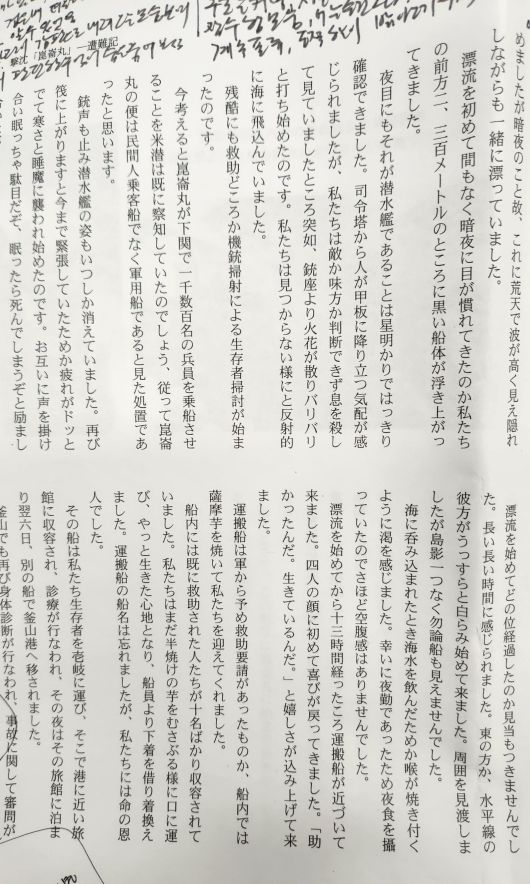 めましたが暗夜のこと故、これに荒天で波が高く見え隠れ
しながらも一緒に漂っていました。
漂流を初めて間もなく暗夜に目が慣れてきたのか私たち
の前方二、三百メートルのところに黒い船体が浮き上がっ
てきました。
夜目にもそれが潜水艦であることは星明かりではっきり
確認できました。司令塔から人が甲板に降り立つ気配が感
じられましたが、私たちは敵か味方か判断できず息を殺し
て見ていましたところ突如、銃座より火花が散りバリバリ
と打ち始めたのです。私たちは見つからない様にと反射的
に海に飛込んでいました。
残酷にも救助どころか機銃掃射による生存者掃討が始ま
ったのです。
今考えると崑崙丸が下関で一千数百名の兵員を乗船させ
ることを米潜は既に察知していたのでしょう、従って崑崙
丸の便は民間人乗客船でなく軍用船であると見た処置であ
ったと思います。
銃声も止み潜水艦の姿もいつしか消えていました。再び
筏に上がりますと今まで緊張していたためか疲れがドッと
でて寒さと睡魔に襲われ始めたのです。お互いに声を掛け
合い眠っちゃ駄目だぞ、眠ったら死んでしまうぞと励まし
撃沈「崑崙丸」―遭難記
漂流を始めてどの位経過したのか見当もつきませんでし
た。長い長い時間に感じられました。東の方か、水平線の
彼方がうっすらと白らみ始めて来ました。周囲を見渡しま
したが島影一つなく勿論船も見えませんでした。
海に呑み込まれたとき海水を飲んだためか喉が焼き付く
ように渇を感じました。幸いに夜勤であったため夜食を攝
っていたのでさほど空腹感はありませんでした。
漂流を始めてから十三時間経ったころ運搬船が近づいて
来ました。四人の顔に初めて喜びが戻ってきました。「助
かったんだ。生きているんだ。」と嬉しさが込み上げて来
ました。
運搬船は軍から予め救助要請があったものか、船内では
薩摩芋を焼いて私たちを迎えてくれました。
船内には既に救助された人たちが十名ばかり収容されて
いました。私たちはまだ半焼けの芋をむさぶる様に口に運
び、やっと生きた心地となり、船員より下着を借り着換え
ました。運搬船の船名は忘れましたが、私たちには命の恩
人でした。
その船は私たち生存者を壱岐に運び、そこで港に近い旅
館に収容され、診療が行なわれ、その夜はその旅館に泊ま
り翌六日、別の船で釜山港へ移されました。
釜山でも再び身体診断が行なわれ、事故に関して審問が